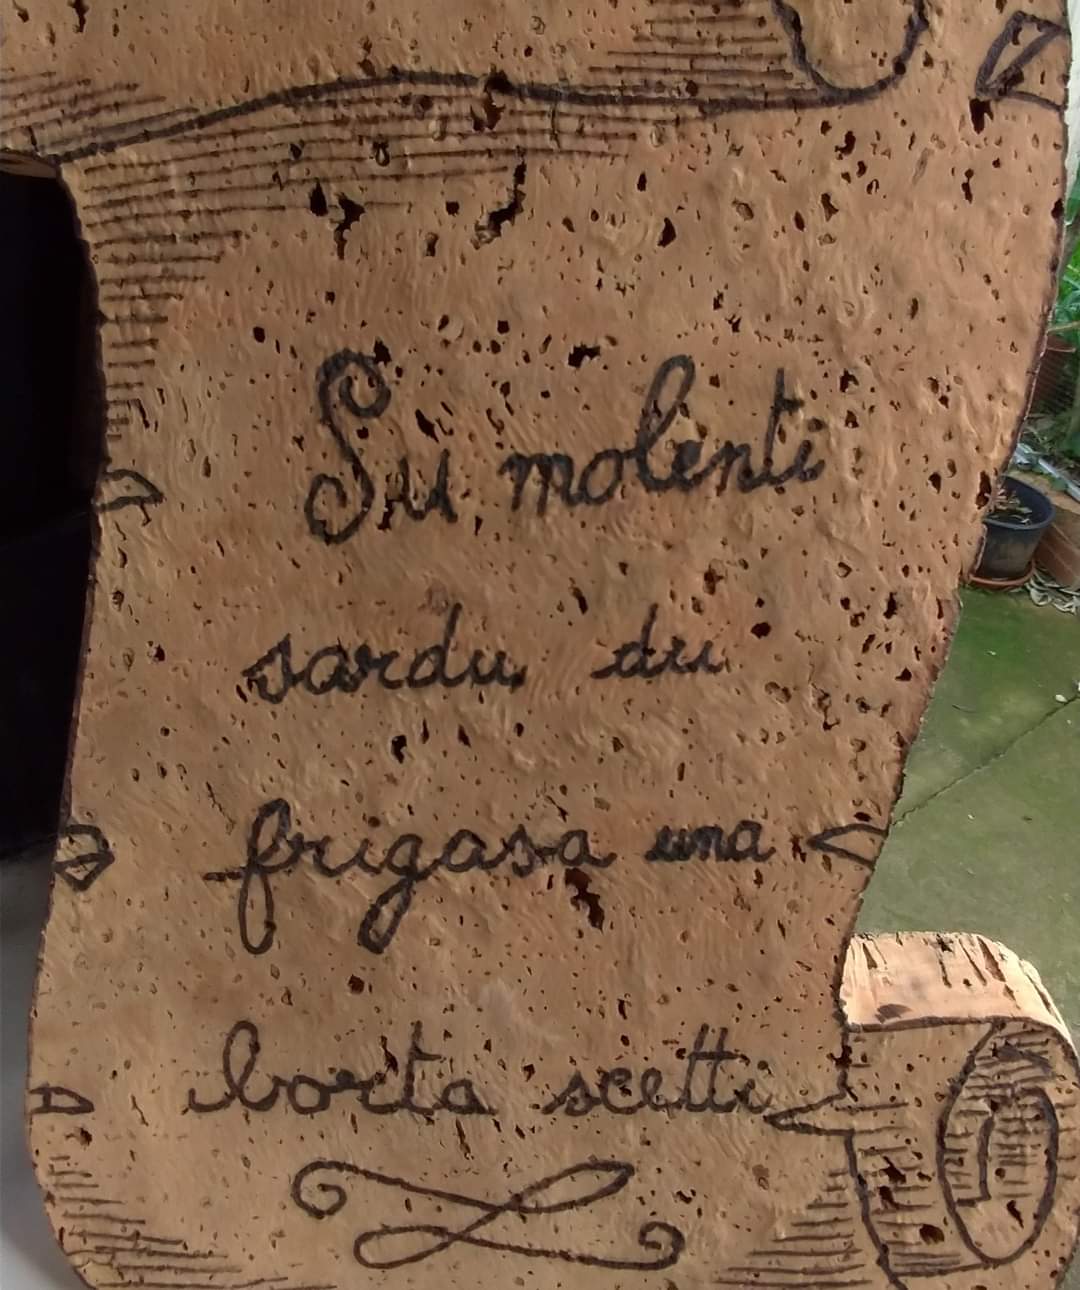 Su molenti
sardu du
frigasa una
borta scetti